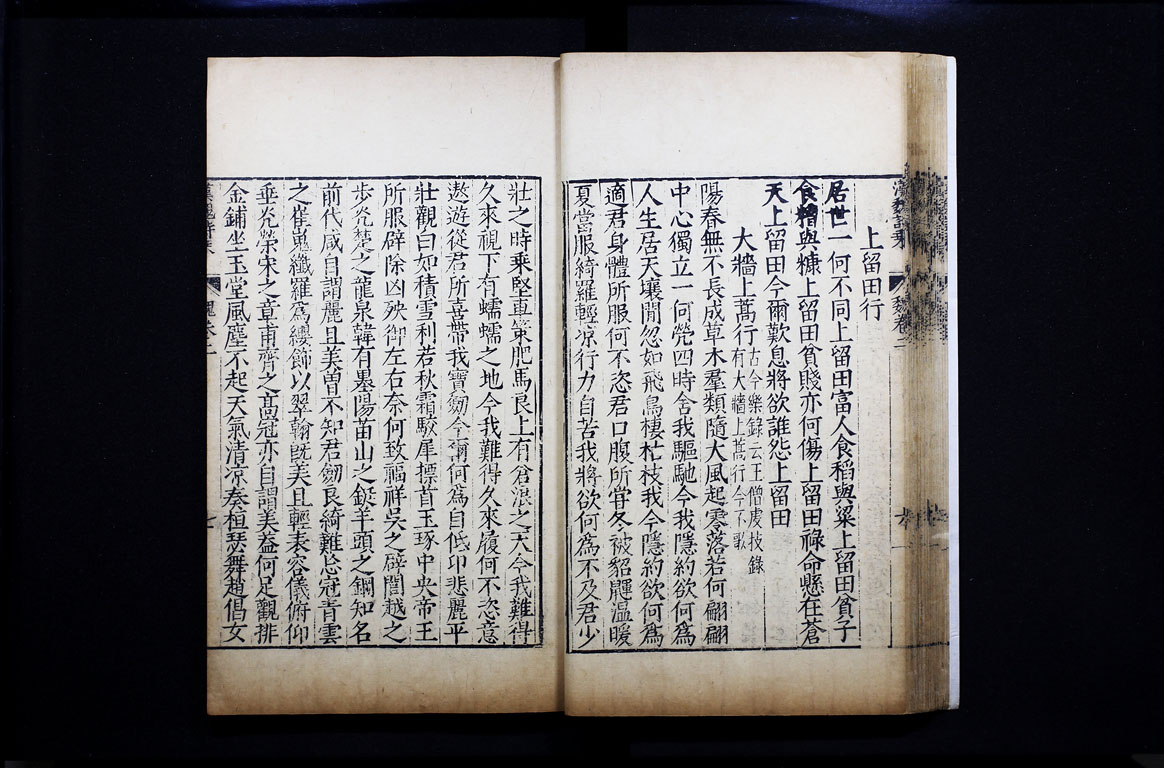 上留田行
居世一何不同上留田富人食稻與粱上留田貧子
食糟與糠上留田貧賤亦何傷上留田祿命懸在蒼
天上留田今爾歎息將欲誰怨上留田
大牆上蒿行古今樂錄云王僧虔技錄
有大牆上蒿行今不歌
陽春無不長成草木羣類隨大風起零落若何翩翩
中心獨立一何煢四時舍我驅馳今我隱約欲何為
人生居天壤閒忽如飛鳥棲枯枝我今隱約欲何為
適君身體所服何不恣君口腹所嘗冬被貂鼲温暖
夏當服綺羅輕凉行力自苦我將欲何為不及君少
壯之時乘堅車策肥馬良上有倉浪之天今我難得
久來視下有蠕蠕之地今我難得久來履何不恣意
遨遊從君所喜帶我寶劒今爾何為自低卬悲麗平
壯觀白如積雪利若秋霜駮犀摽首玉琢中央帝王
所服辟除凶殃御左右奈何致福祥吳之辟閭越之
步光楚之龍泉韓有墨陽苗山之鋌羊頭之鋼知名
前代咸自謂麗且美曽不知君劒良綺難忘冠青雲
之崔嵬纖羅為纓飾以翠翰既美且輕表容儀俯仰
垂光榮宋之章甫齊之高冠亦自謂美蓋何足觀排
金鋪坐玉堂風塵不起天氣清凉奏桓瑟舞趙倡女